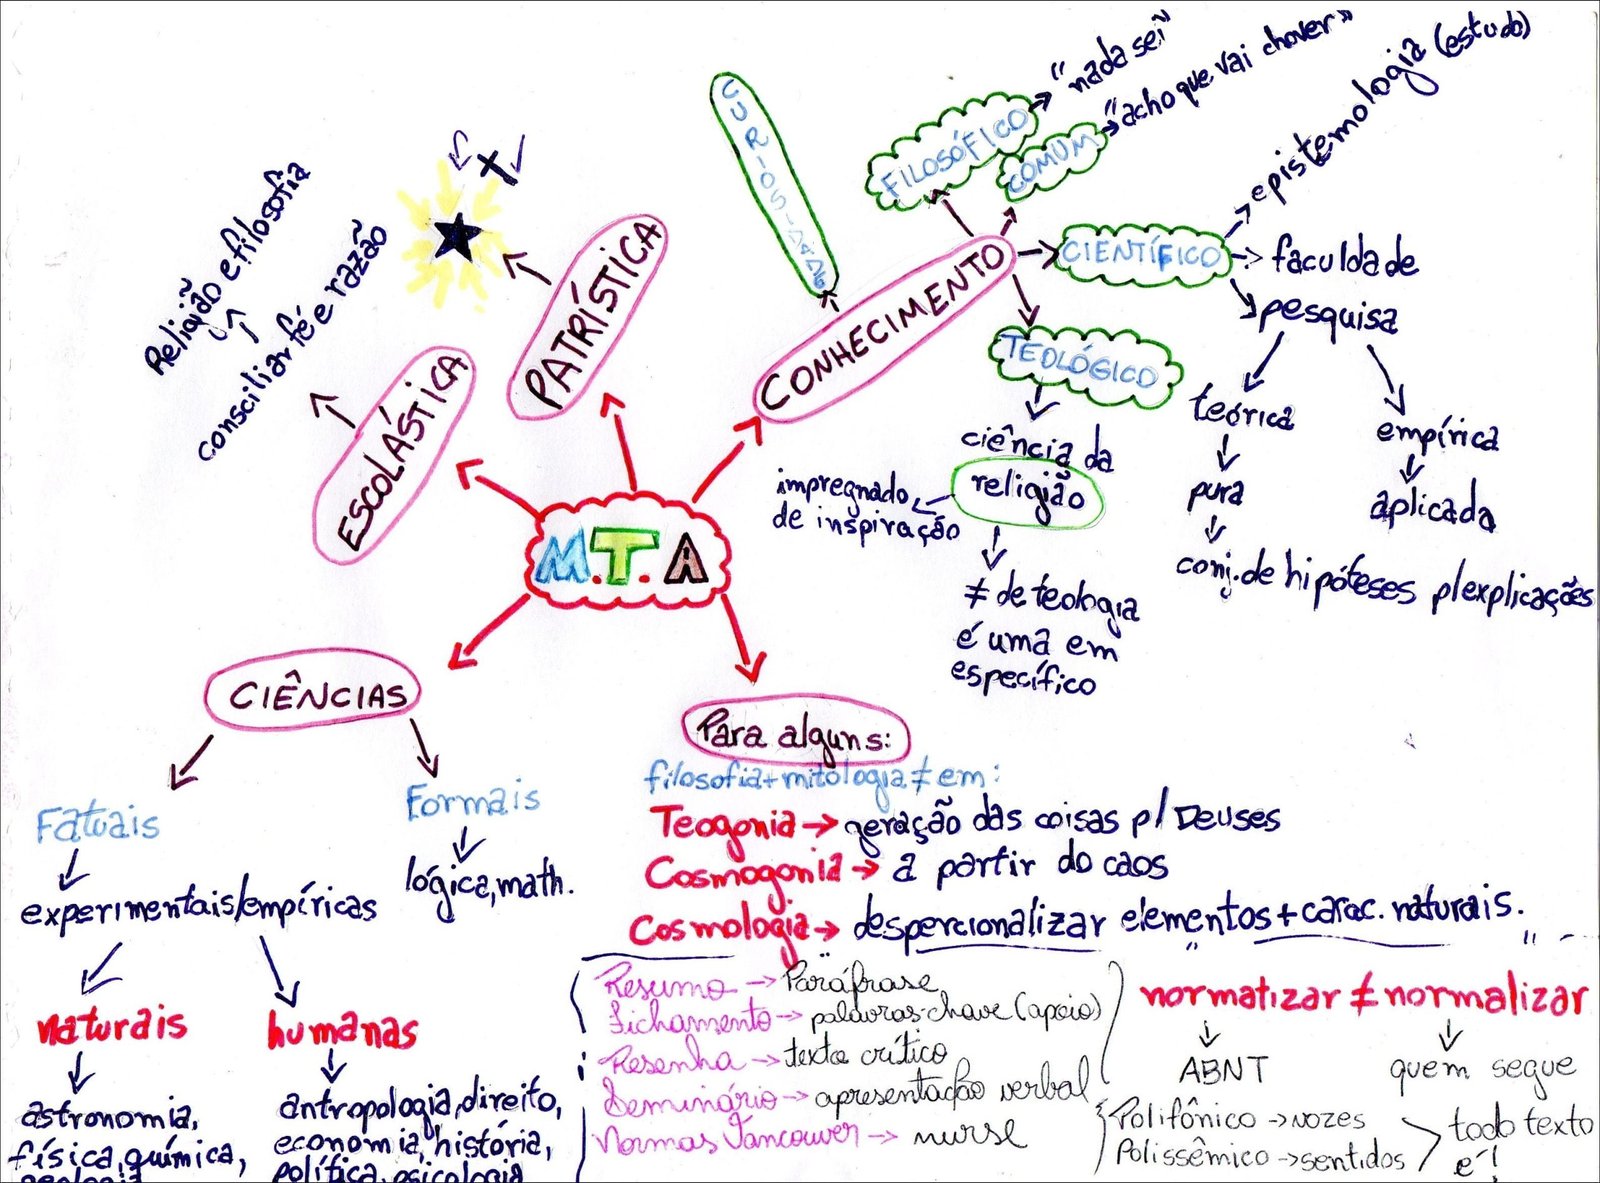 M.T.A
CONHECIMENTO
CURIOSIDADE
FILOSÓFICO
"nada sei"
COMUM
"acho que vai chover"
CIENTÍFICO
epistemologia (estudo)
faculdade
pesquisa
teórica
pura
conj. de hipóteses p/explicações
empírica
aplicada
TEOLÓGICO
ciência da
religião
impregnado
de inspiração
≠ de teologia
é uma em
específico
PATRÍSTICA
ESCOLÁSTICA
consciliar fé e razão
Religião e filosofia
CIÊNCIAS
Fatuais
experimentais/empíricas
naturais
astronomia,
física, química,
geologia
humanas
antropologia, direito,
economia, história,
política, psicologia
Formais
lógica, math.
Para alguns:
filosofia+mitologia ≠ em:
Teogonia → geração das coisas p/ Deuses
Cosmogonia → a partir do caos
Cosmologia → despercionalizar elementos + carac. naturais.
Resumo → Paráfrase
Fichamento → palavras-chave (apoio)
Resenha → texto crítico
Seminário → apresentação verbal
Normas Vancouver → nurse
normatizar ≠ normalizar
ABNT
quem segue
Polifônico → vozes
Polissêmico → sentidos
todo texto
é!